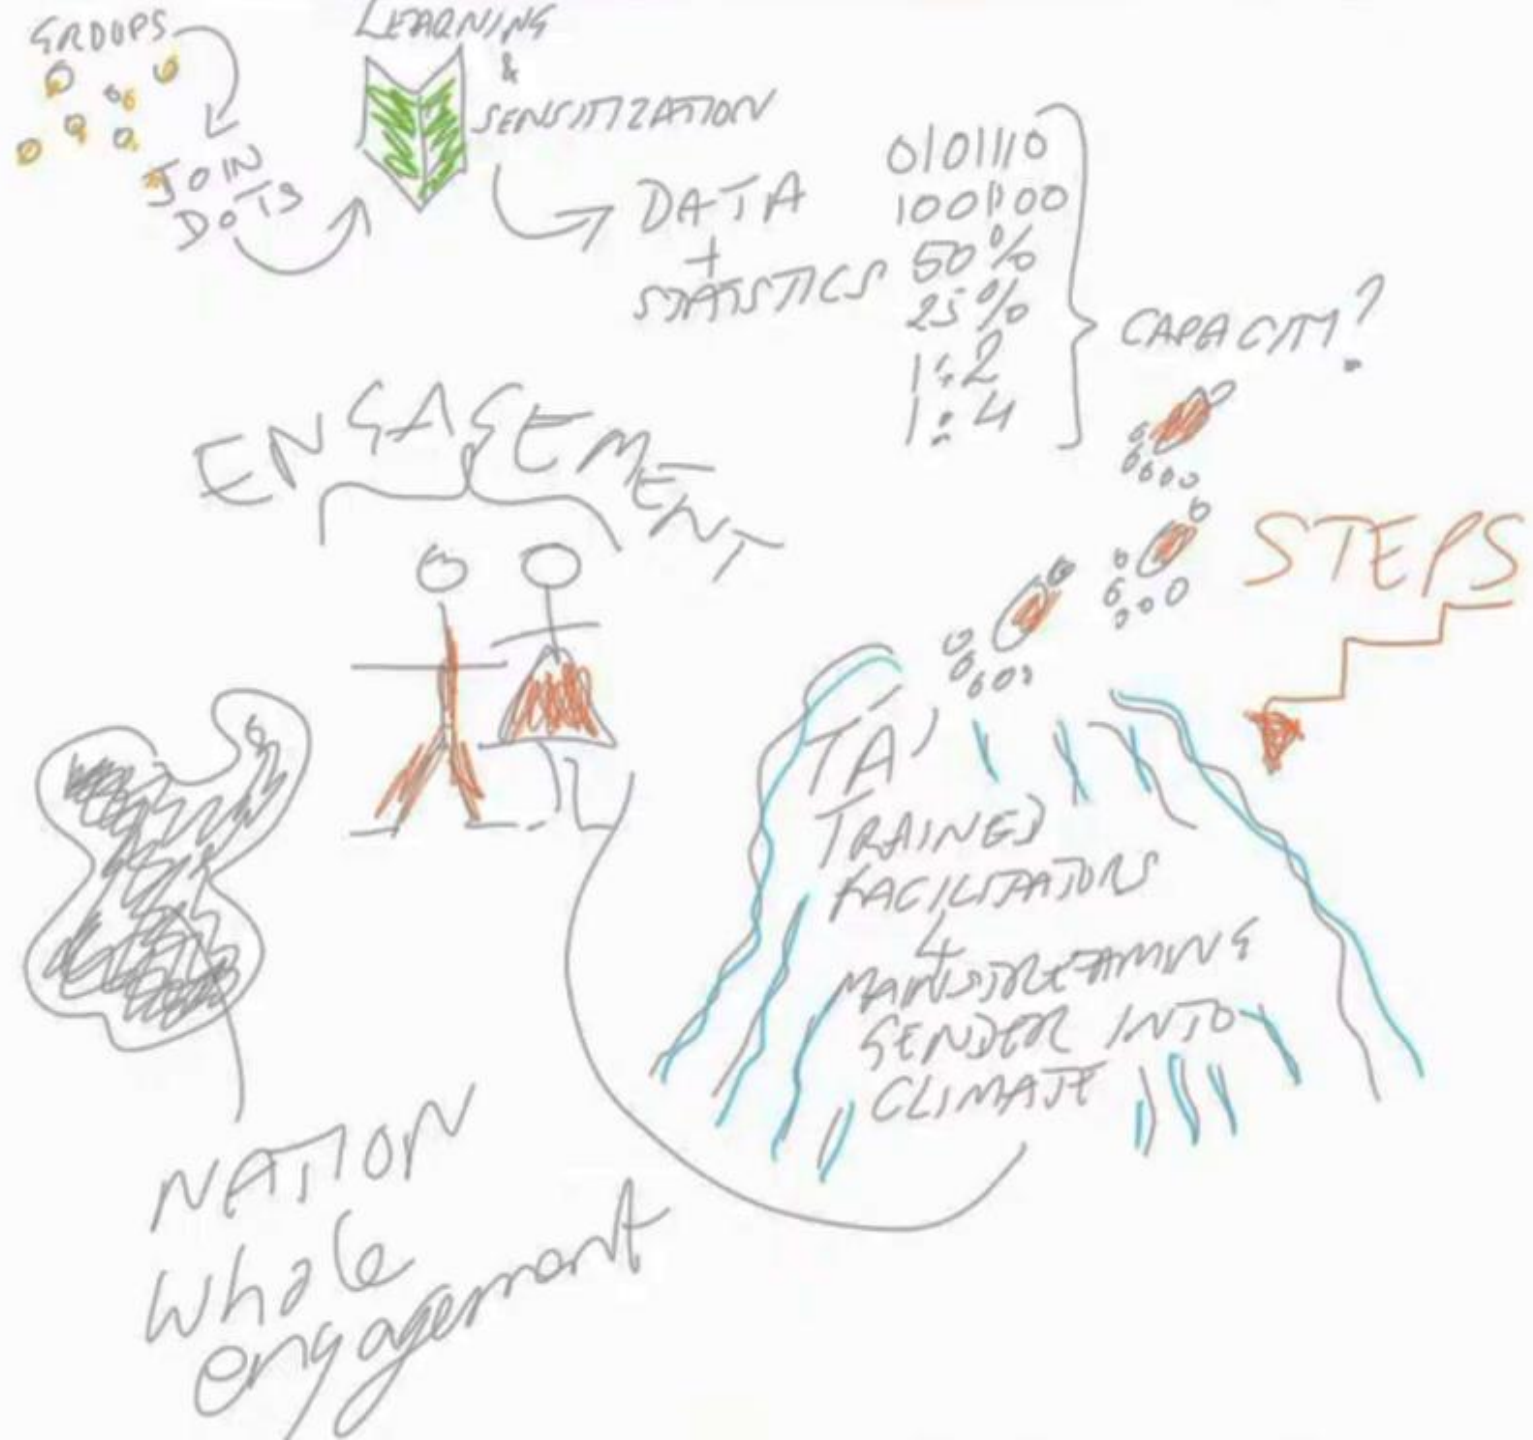 GROUPS
JOIN
DOTS
LEARNING
&
SENSITIZATION
DATA
+
STATISTICS
0101110
1001100
50%
25%
1:2
1:4
CAPACITY?
ENGAGEMENT
STEPS
TA'
TRAINED
FACILITATORS
4
MAINSTREAMING
GENDER INTO
CLIMATE
NATION
Whole
engagement